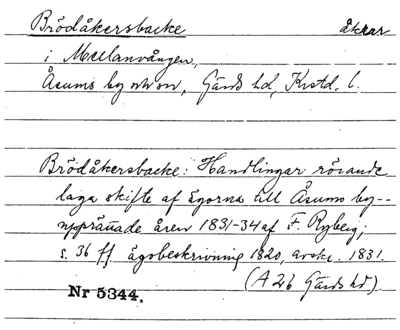 Brödåkersbacke åkrar
i Mellanvången,
Åsums by o sn, Gärds hd, Krstd. l.
Brödåkersbacke: Handlingar rörande
laga skifte af ägorna till Åsums by--
upprättade åren 1831-34 af F. Ryberg;
s. 36 ff ägobeskrivning 1820, avskr. 1831.
(A 26 Gärds hd).
Nr 5344.